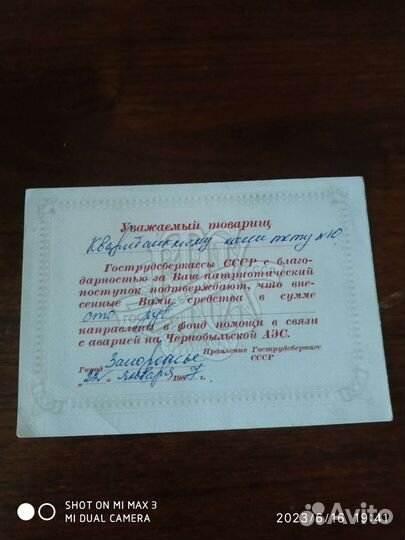 Уважаемый товарищ
Квартальному комитету №10
Гострудсберкассы СССР с благо-
дарностью за Ваш патриотический
поступок подтверждают, что вне-
сенные Вами средства в сумме
сто руб
направлены в фонд помощи в связи
с аварией на Чернобыльской АЭС.
Город Запорожье Правление Гострудсберкасс
СССР
" " января 1987 г.
SHOT ON MI MAX 3
MI DUAL CAMERA
2023/6/16 19:41
Avito